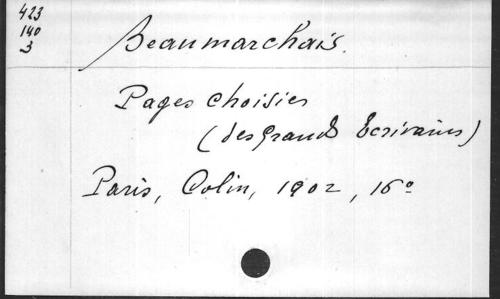 423
140
3
Beaumarchais.
Pages choisies
(des Grands Écrivains)
Paris, Colin, 1902, 16º